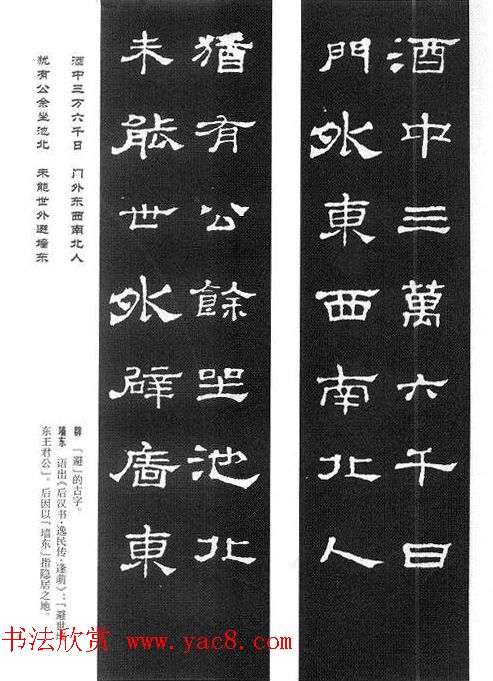 酒中三萬六千日
門外東西南北人
猶有公餘坐池北
未能世外辟廧東
酒中三万六千日 门外东西南北人
犹有公余坐池北 未能世外避墙东
辟 「避」的古字。
墙东 语出《后汉书·逸民传·逢萌》：「避世墙
东王君公」。后因以「墙东」指隐居之地。
书法欣赏 www.yac8.com